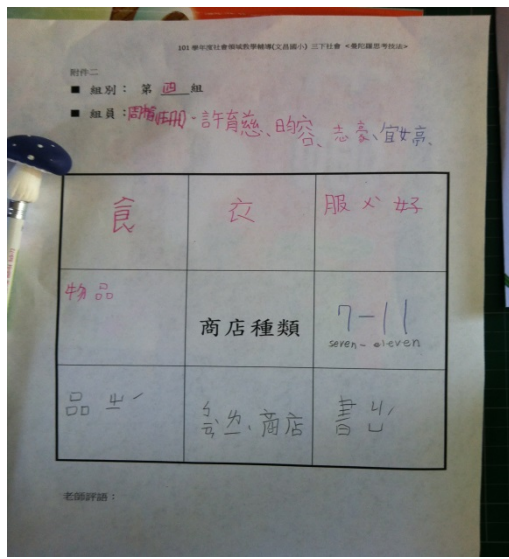 101 學年度社會領域教學輔導(文昌國小) 三下社會 <曼陀羅思考技法>
附件二
■ 組別： 第 四 組
■ 組員： 許育慈、昀容、志豪、宜婷、
食 衣 服ㄨˋ好
物品 商店種類 7-11
seven-eleven
品ㄓˊ 商店 書
老師評語：